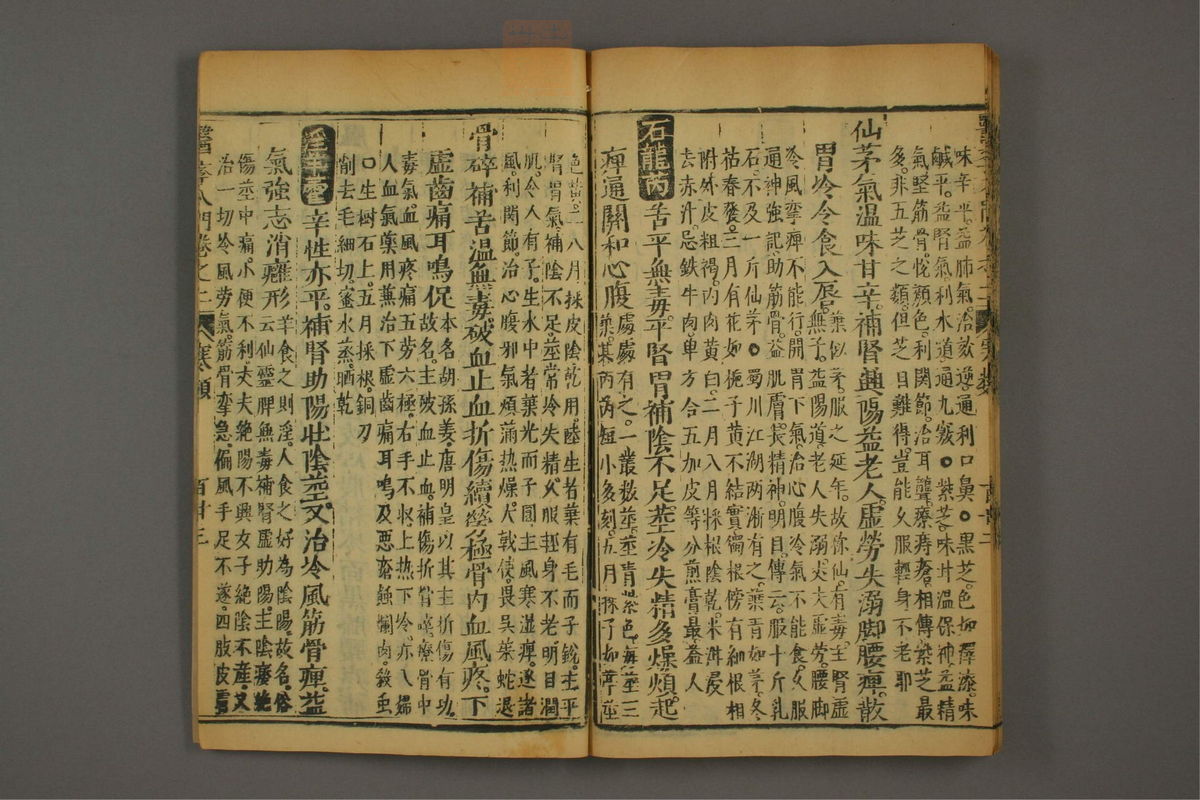 味辛平。益肺氣。治欬逆。通利口鼻。○黑芝。色如澤漆。味
鹹平。益腎氣。利水道。通九竅。○紫芝。味甘溫。保神。益精
氣。堅筋骨。悅顏色。利關節。治耳聾。療痔瘡。相傳紫芝最
多。非五芝之類。但芝日難得。豈能久服輕身不老耶
仙茅氣溫味甘辛。補腎興陽益老人。虛勞失溺脚腰痺。散
胃冷令食入唇。
葉似茅。服之延年。故你仙。有毒。主腎虛
無子。益陽道。老人失溺。丈夫虛勞。腰脚
冷風攣痺不能行。開胃下氣。治心腹冷氣不能食。久服
通神強記。助筋骨。益肌膚。長精神。明目。傳云。服十斤乳
石。不及一斤仙茅。○蜀川江湖兩浙有之。葉青如茅。冬
枯春發。三月有花如梔子黃。不結實。獨根傍有細根相
附。外皮粗褐。內肉黃白。二月八月採根陰乾。米泔浸
去赤汁。忌鐵牛肉。單方合五加皮等分煎膏。最益人
石龍芮
苦平無毒。平腎胃。補陰不足。莖冷失精多燥煩。起
痺通關和心腹
處處有之。一叢數莖。莖青紫色。每莖三
葉。其芮芮短小多刻。五月採子如葶藶
色黃。二八月採皮陰乾用。陸生者葉有毛而子銳。主平
腎胃氣。補陰不足。莖常冷失精。久服輕身不老明目。潤
肌。令人有子。生水中者葉光而子圓。主風寒濕痺。逐諸
風。利關節。治心腹邪氣煩滿熱燥。大戟使。畏吳茱蛇退
骨碎補苦溫無毒。破血止血折傷續。勞極骨內血風疼。下
虛齒痛耳鳴促
本名胡孫姜。唐明皇以其主折傷有功。
故名。主破血止血。補傷折骨碎。療骨中
毒氣。血風疼痛。五勞六極。右手不收。上熱下冷。亦入婦
人血氣藥用。兼治下虛齒痛耳鳴。及惡瘡蝕爛肉。殺虫
○生樹石上。五月採根。銅刀
削去毛細切。蜜水蒸。晒乾
淫羊藿
辛性亦平。補腎助陽壯陰莖。又治冷風筋骨痺。益
氣強志消癰形
羊食之則淫。人食之好為陰陽。故名。俗
云仙靈脾。無毒。補腎虛助陽。主陰痿絕
傷莖中痛。小便不利。丈夫絕陽不興。女子絕陰不產。又
治一切冷風勞氣。筋骨攣急。偏風手足不遂。四肢皮膚
醫學入門卷之二
寒類
百廿三